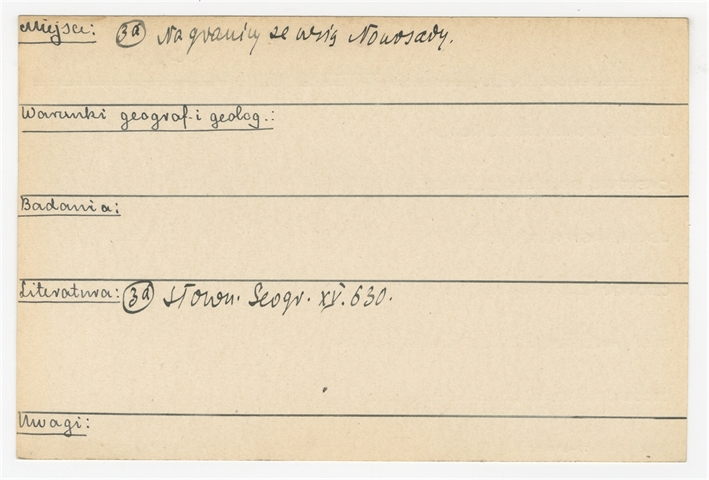 Miejsce: 3a Na granicy ze wsią Nowosady.
Warunki geograf. i geolog.:
Badania:
Literatura: 3a Słown. Geogr. XV. 630.
Uwagi: